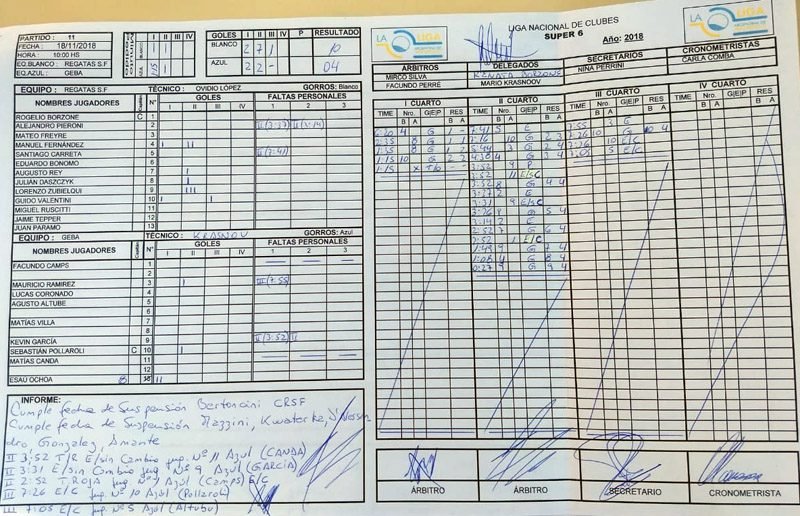 PARTIDO : 11
FECHA : 18/11/2018
HORA : 10:00 HS
EQ.BLANCO : REGATAS S.F
EQ.AZUL : GEBA
I II III IV
GOLES I II III IV P RESULTADO
BLANCO 2 7 1 10
AZUL 2 2 - 04
LIGA NACIONAL DE CLUBES
SUPER 6
Año: 2018
LA LIGA
LA LIGA
ÁRBITROS
DELEGADOS
SECRETARIOS
CRONOMETRISTAS
MIRCO SILVA
RENATA BORZONE
NINA PERRINI
CARLA COMBA
FACUNDO PERRE
MARIO KRASNOOV
EQUIPO : REGATAS S.F TÉCNICO : OVIDIO LÓPEZ GORROS: Blanco
NOMBRES JUGADORES N° GOLES FALTAS PERSONALES
I II III IV 1 2 3
ROGELIO BORZONE C 1
ALEJANDRO PIERONI 2 II (3:37) II (3:14)
MATEO FREYRE 3
MANUEL FERNÁNDEZ 4 I II
SANTIAGO CARRETA 5 II (7:41)
EDUARDO BONOMO 6
AUGUSTO REY 7 I
JULIÁN DASZCZYK 8 II
LORENZO ZUBIELQUI 9 III
GUIDO VALENTINI 10 I I
MIGUEL RUSCITTI 11
JAIME TEPPER 12
JUAN PARAMO 13
EQUIPO : GEBA TÉCNICO : KRASNOV GORROS: Azul
NOMBRES JUGADORES N° GOLES FALTAS PERSONALES
I II III IV 1 2 3
FACUNDO CAMPS 1
2
MAURICIO RAMIREZ 3 I III (7:55)
LUCAS CORONADO 4
AGUSTO ALTUBE 5
6
MATÍAS VILLA 7
8
KEVIN GARCÍA 9 II (3:52) II
SEBASTIÁN POLLAROLI C 10 I
MATÍAS CANDA 11
12
ESAÚ OCHOA 8 II
I CUARTO
II CUARTO
III CUARTO
IV CUARTO
TIME Nro. G|E|P RES
B A B A
6:20 4 G 1 -
2:35 8 G 1 1
1:35 8 G 1 2
1:15 10 G 2 2
7:41 5 E
7:16 10 G 2 3
5:44 3 G 2 4
3:52 9 P
3:52 11 E/SC
3:52 8 G 4 4
3:37 2 E
3:31 9 E/SC
3:26 8 G 5 4
3:14 2 E
2:52 7 G 6 4
2:52 1 E/C
1:49 9 G 7 4
1:08 4 G 8 4
0:27 9 G 9 4
7:55 3 E
7:26 10 G 10 4
7:26 10 E/C
7:05 5 E/C
INFORME:
Cumple fecha de Suspensión Bertoncini CRSF
Cumple fecha de Suspensión Mazzini,
dro, Gonzalez, Amante
II 3:52 T/R E/sin Cambio jug. Nº 11 Azul (CANDA)
II 3:31 E/sin Cambio jug Nº 9 Azul (GARCÍA)
II 2:52 T ROJA jug Nº 1 Azul (Camps) E/C
III 7:26 E/C jug. Nº 10 Azul (Pollaroli)
III 7:05 E/C jug. Nº 5 Azul (Altube)
ÁRBITRO
ÁRBITRO
SECRETARIO
CRONOMETRISTA